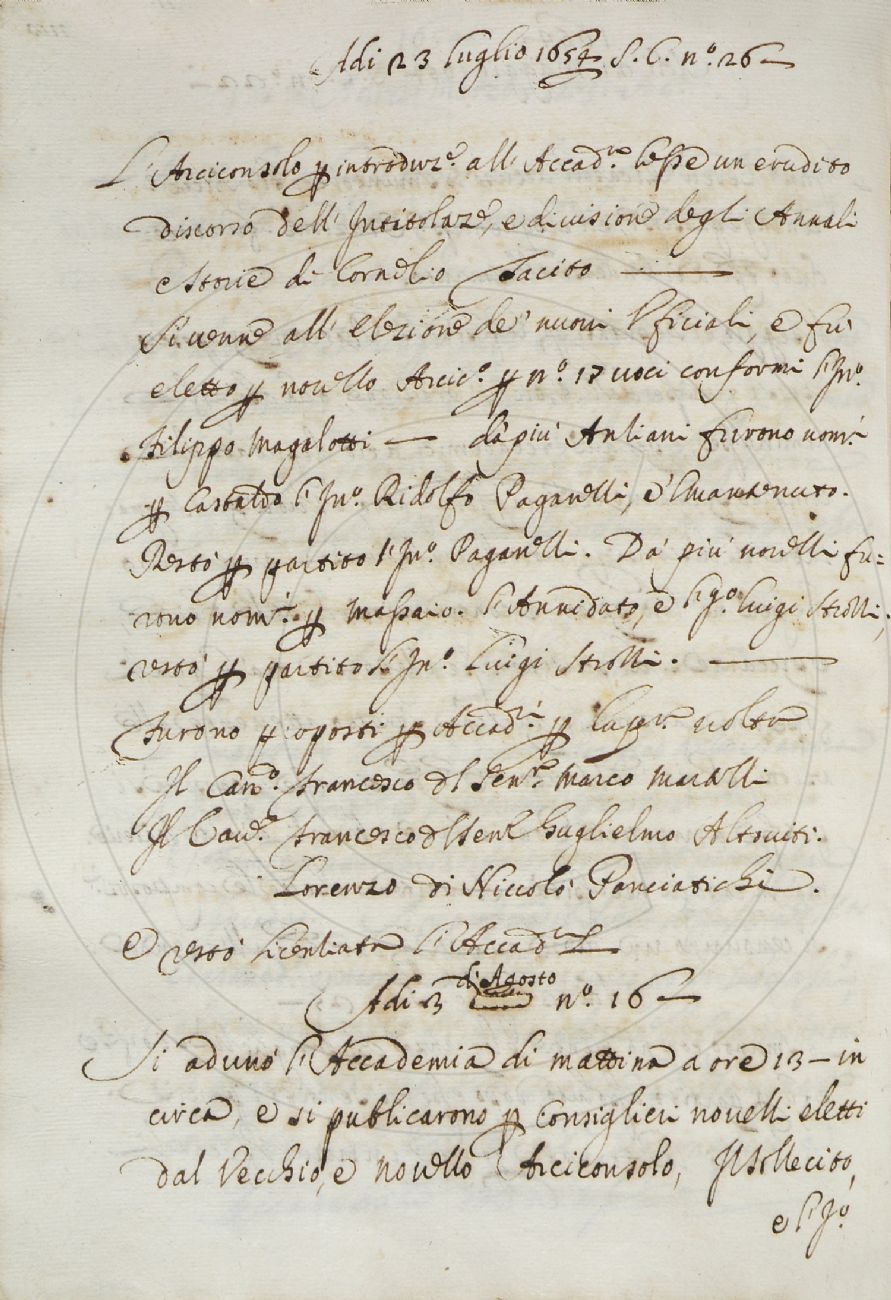 Adi 23 luglio 1654 S. C. n.º 26 —
L'Arciconsolo p introduz.e all'Accad.a lesse un erudito
discorso dell'Intitolaz.e, e divisione degli Annali
e storie di Cornelio Tacito —
Si venne all'elezione de' nuovi Ufficiali, e fu
eletto p novello Arcic.º p n.º 17 voci conformi l'In.º
Filippo Magalotti — da più Anziani furono nom.ti
p Castaldo l'In.º Ridolfo Paganelli, e
Restò p partito l'In.º Paganelli. Da più novelli fu=
rono nom.ti p Massaio. l'Annidato, e l' Luigi Strozzi,
restò p partito l'In.º Luigi Strozzi. —
Furono proposti p Accad.ci p la pr.a volta
Il Can.co Francesco del Sen.re Marco Martelli
Il Cav.e Francesco del Sen.e Guglielmo Altoviti.
Lorenzo di Niccolò Panciatichi.
e restò licenziata l'Accad.a
Adi 3 d'Agosto n.º 16 —
Si adunò l'Accademia di mattina a ore 13 — in
circa, e si publicarono p Consiglieri novelli eletti
dal Vecchio, e novello Arciconsolo, Il Sollecito,
e l'I.º